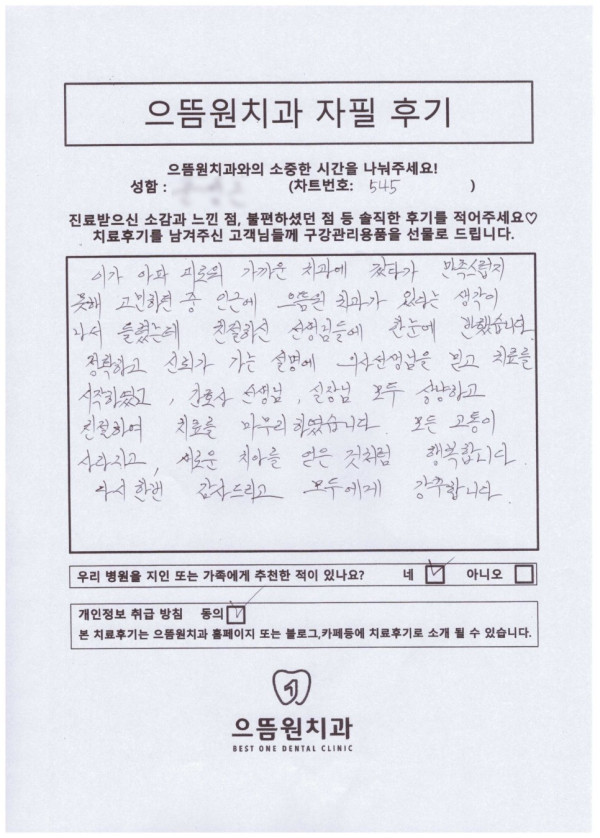 으뜸원치과 자필 후기
으뜸원치과와의 소중한 시간을 나눠주세요!
성함 : (차트번호: 545 )
진료받으신 소감과 느낀 점, 불편하셨던 점 등 솔직한 후기를 적어주세요♡
치료후기를 남겨주신 고객님들께 구강관리용품을 선물로 드립니다.
이가 아파 가까운 치과에 갔다가 만족스럽지
못해 고민하던 중 인근에 으뜸원 치과가 있다는 생각이
나서 들렸는데 친절하신 선생님들에 한눈에 반했습니다.
정확하고 신뢰가 가는 설명에 의사선생님을 믿고 치료를
시작하였고, 간호사 선생님, 실장님 모두 상냥하고
친절하여 치료를 마무리하였습니다. 모든 고통이
사라지고, 새로운 치아를 얻은 것처럼 행복합니다.
다시한번 감사드리고 모두에게 강추합니다.
우리 병원을 지인 또는 가족에게 추천한 적이 있나요? 네 ☑ 아니오 ☐
개인정보 취급 방침 동의 ☑
본 치료후기는 으뜸원치과 홈페이지 또는 블로그,카페등에 치료후기로 소개 될 수 있습니다.
으뜸원치과
BEST ONE DENTAL CLINIC